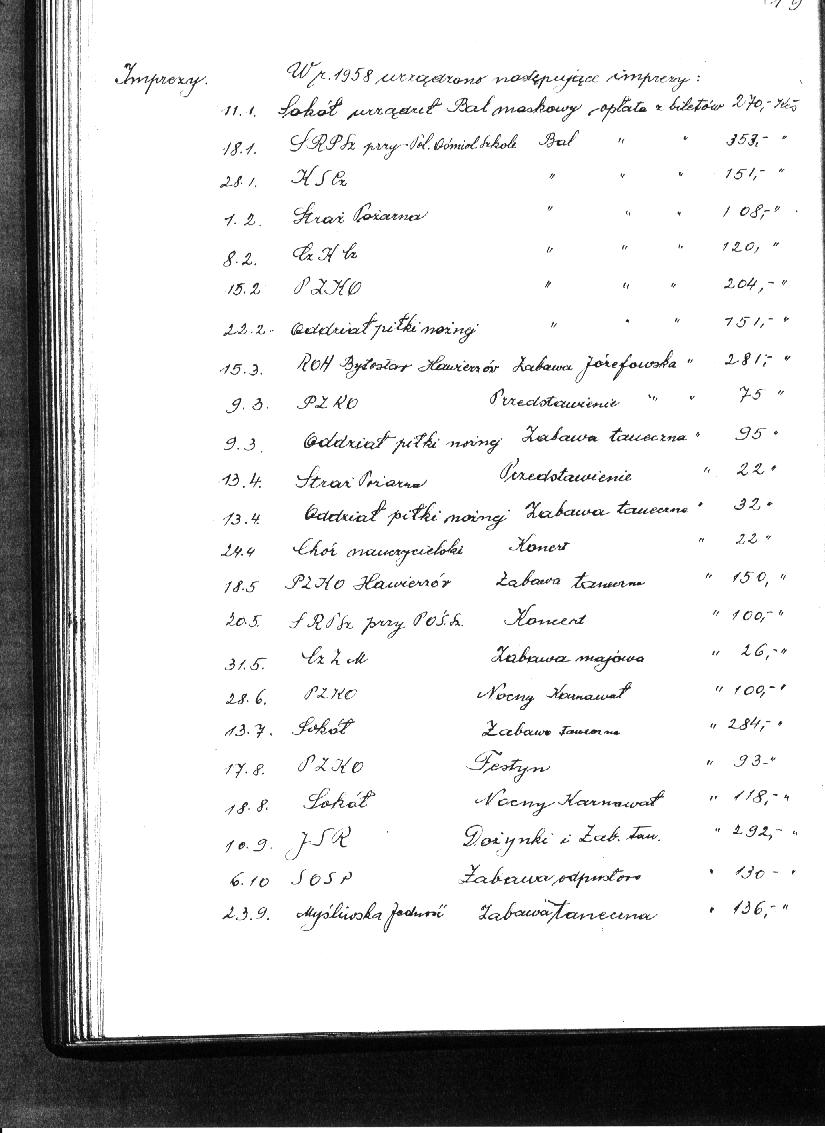 19
Imprezy. W r. 1958 urządzono następujące imprezy:
11.1. Sokół urządził Bal maskowy opłata z biletów 270,- Kčs
18.1. SRPSz przy Pol. Ośmiol. Szkole Bal " " 353,- "
28.1. KSCz " " " 151,- "
1.2. Straż Pożarna " " " 108,- "
8.2. CzKCz " " " 120, "
15.2 PZKO " " " 204,- "
22.2. Oddział piłki nożnej " " " 151,- "
15.3. ROH Bytostav Hawierzów Zabawa Józefowska " 281,- "
9.3. PZKO Przedstawienie " " 75 "
9.3. Oddział piłki nożnej Zabawa taneczna " 95 "
13.4. Straż Pożarna Przedstawienie " 22 "
13.4. Oddział piłki nożnej Zabawa taneczna " 32 "
24.4 Chór nauczycielski Koncert " 22 "
18.5 PZKO Hawierzów Zabawa taneczna " 150, "
20.5. SRPSz przy POŚSz. Koncert " 100,- "
31.5. CzZM Zabawa majowa " 26,- "
28.6. PZKO Nocny Karnawał " 100,- "
13.7. Sokół Zabawa taneczna " 284,- "
17.8. PZKO Festyn " 93- "
18.8. Sokół Nocny Karnawał " 118,- "
10.9. JSR Dożynki i Zab. tan. " 292,- "
6.10 SOSP Zabawa odpustowa " 130 - "
23.9. Myśliwska Jedność Zabawa taneczna " 136,- "